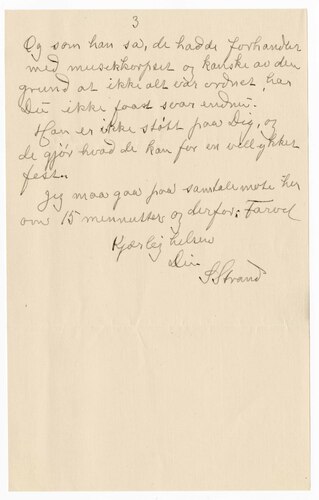 3
Og som han sa, de hadde forhandler
med musikkorpset og kanske av den
grund at ikke alt var ordnet, har
Du ikke faat svar endnu.
Han er ikke støtt paa Dig, og
de gjør hvad de kan for en vellykket
fest.
Jeg maa gaa paa samtalemøte her
om 15 minnutter og derfor: Farvel
Kjærlig helsen
Din
S. Strand